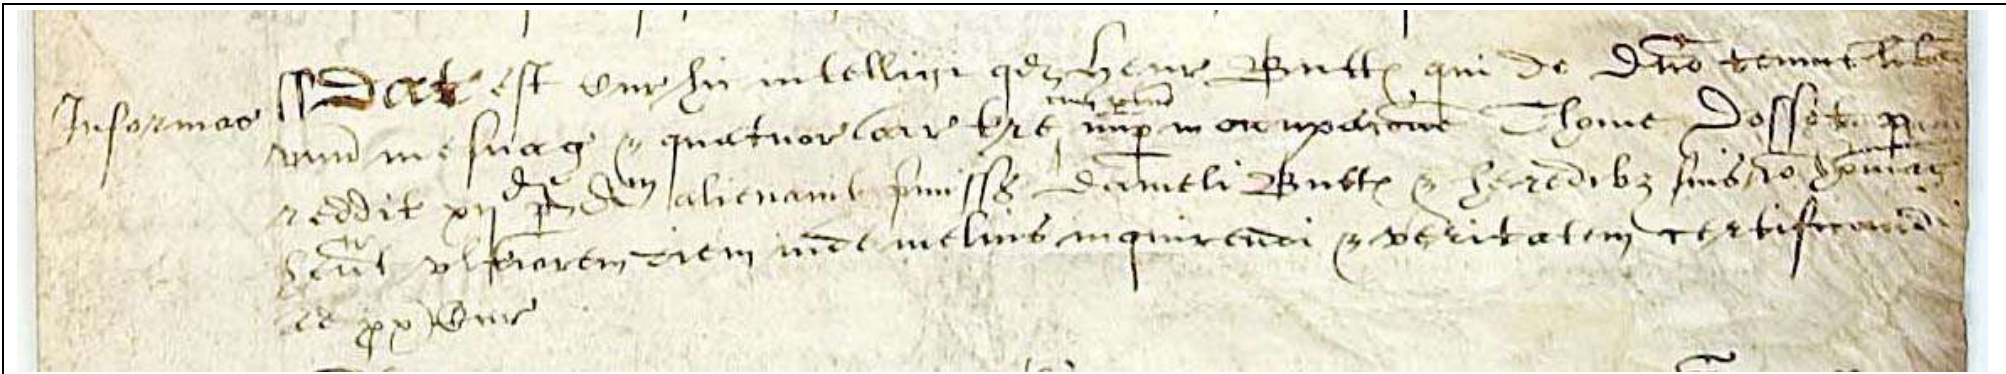 Informac
Dat est Cur hic intelligi qd Henr Butt qui de Dno tenuit libe
cum ptin
unu mesuag & quatuor acr tre nup in occupacone Thome Dosset p
reddit xij d p Ann alienavit pmiss Danieli Butt & heredibz suis Io homag
hent ulteriorem diem inde melius inquirendi & veritatem certificand
ad px Cur